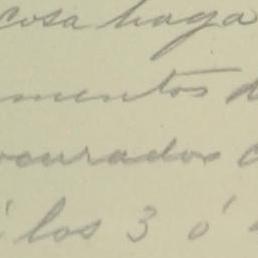 cosa haga
mentos d
ocurados c
los 3 ó